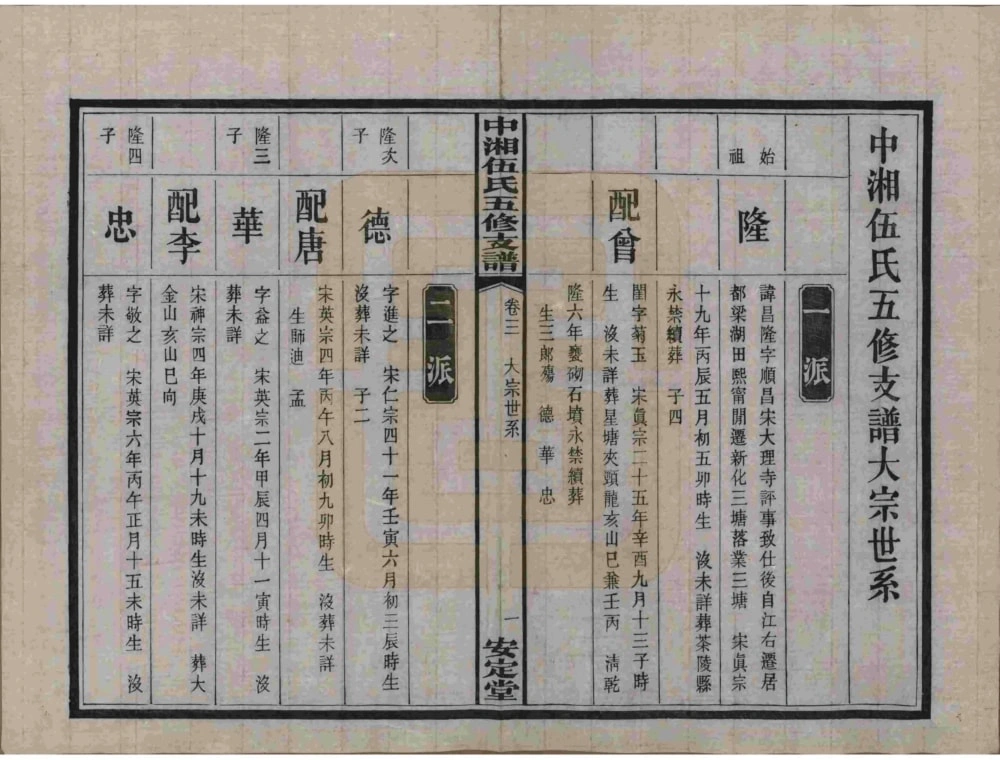 中湘伍氏五修支譜大宗世系
一派
始
祖
隆
諱昌隆字順昌宋大理寺評事致仕後自江右遷居
都梁湖田熙甯間遷新化三塘落業三塘 宋眞宗
十九年丙辰五月初五卯時生 沒未詳葬茶陵縣
永禁續葬 子四
配曾
閨字菊玉 宋眞宗二十五年辛酉九月十三子時
生 沒未詳葬星塘夾頭龍亥山巳兼壬丙 淸乾
隆六年甃砌石墳永禁續葬
生三郞殤 德 華 忠
中湘伍氏五修支譜
卷三 大宗世系
一
安定堂
二派
隆次
子
德
字進之 宋仁宗四十一年壬寅六月初三辰時生
沒葬未詳 子二
配唐
宋英宗四年丙午八月初九卯時生 沒葬未詳
生師迪 孟
隆三
子
華
字益之 宋英宗二年甲辰四月十一寅時生 沒
葬未詳
配李
宋神宗四年庚戌十月十九未時生沒未詳 葬大
金山亥山巳向
隆四
子
忠
字敬之 宋英宗六年丙午正月十五未時生 沒
葬未詳